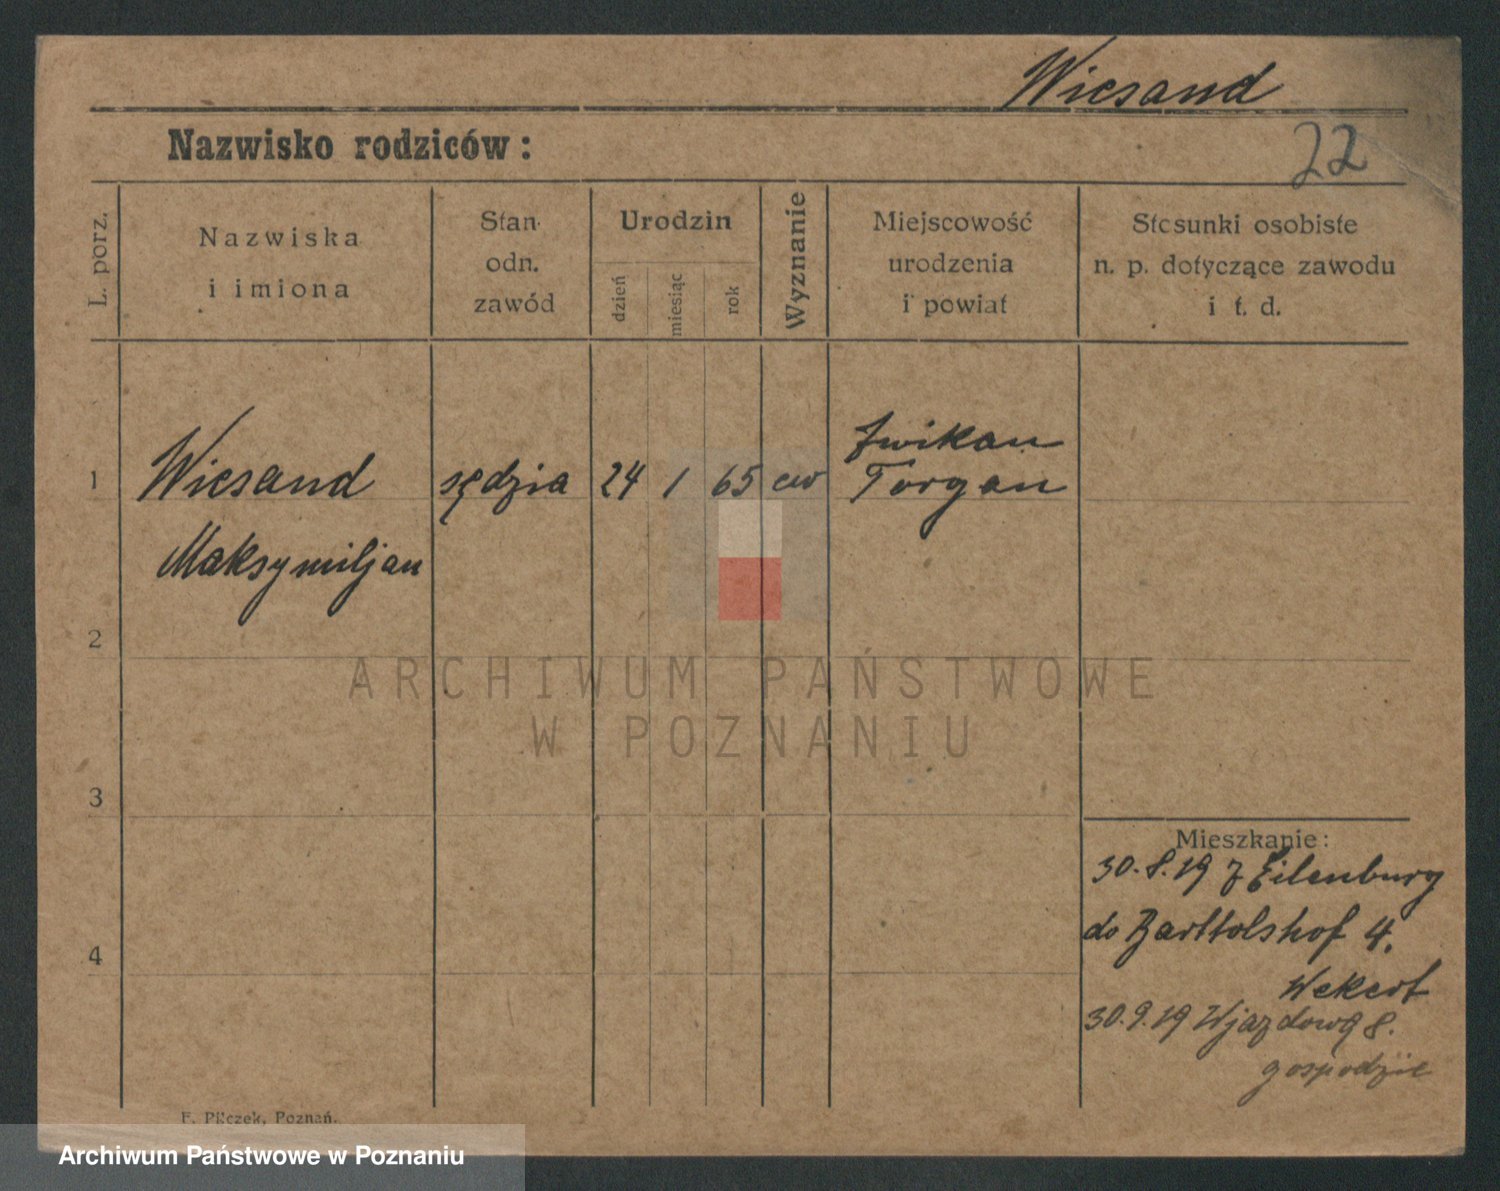 Wiesand
Nazwisko rodziców:
22
L. porz.
Nazwiska
i imiona
Stan
odn.
zawód
Urodzin
dzień
miesiąc
rok
Wyznanie
Miejscowość
urodzenia
i powiat
Stosunki osobiste
n. p. dotyczące zawodu
i t. d.
1
Wiesand
sędzia
24
1
65
ew
Zwikau
Torgau
Maksymiljan
2
ARCHIWUM PAŃSTWOWE
W POZNANIU
3
Mieszkanie:
30.8.19 z Eilenburg
do Barttolshof 4.
4
Wekert
30.9.19 Wjazdowa 8.
gospodzie
F. Pilczek, Poznań.
Archiwum Państwowe w Poznaniu